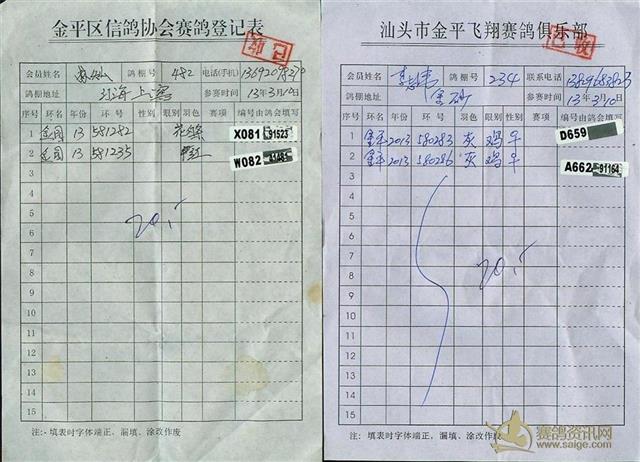 金平区信鸽协会赛鸽登记表
会员姓名 鸽棚号 482 电话(手机)
鸽棚地址 参赛时间 13年3月10日
序号 环名 年份 环号 眼别 羽色 性别 赛项 编号由鸽会填写
1 13 581282 X081 31523
2 13 581235 W082
3
4
5
6 20.5
7
8
9
10
11
12
13
14
15
注:- 填表时字体端正,漏填、涂改作废
汕头市金平飞翔赛鸽俱乐部
会员姓名 鸽棚号 234 联系电话
鸽棚地址 金砂 参赛时间 13年3月10日
序号 环名 年份 环号 羽色 眼别 性别 赛项 编号由鸽会填写
1 金平 2013 580283 灰 鸡 D659
2 金平 2013 580286 灰 鸡 A662 91164
3
4
5
6
7 20.5
8
9
10
11
12
13
14
15
注:- 填表时字体端正,漏填、涂改作废
赛鸽资讯网
www.saige.com